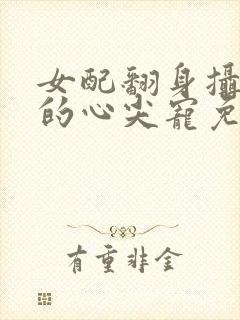 女配翻身攝
的心尖寵免
有重非金